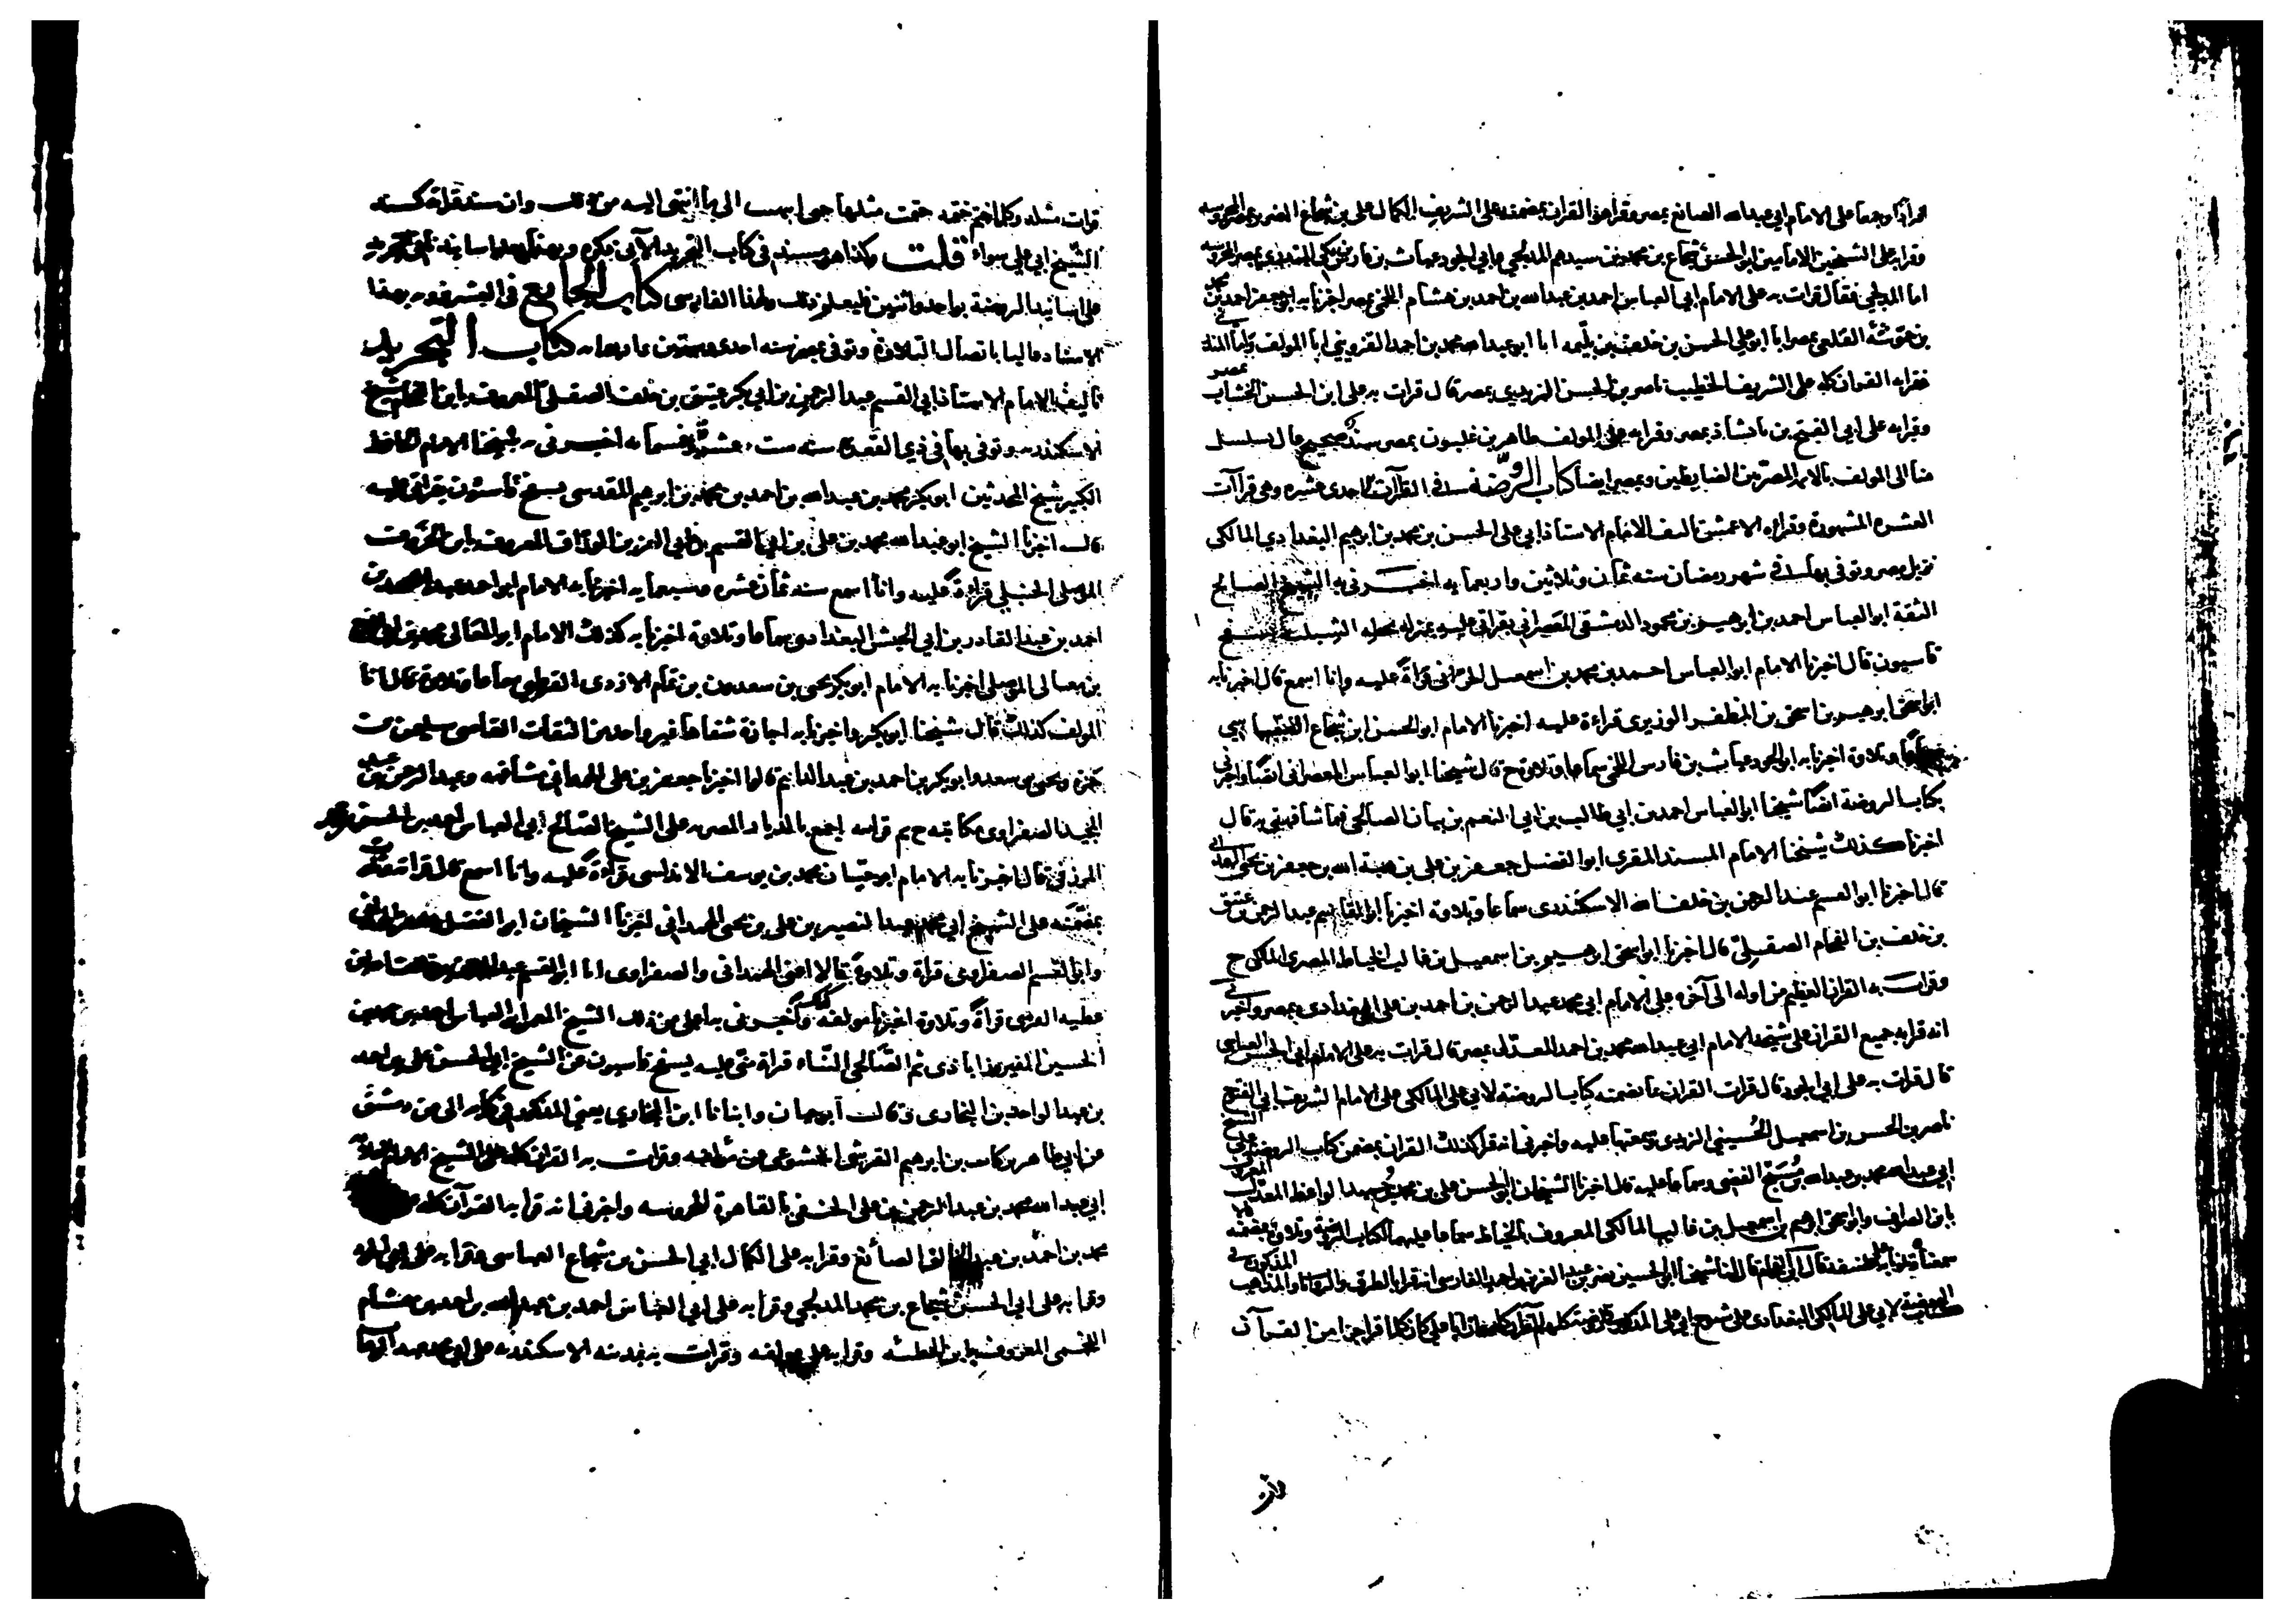 افرادا وجمعا على الامام ابي عبد الله الصائغ بمصر وقرا هو القران بمضمنه على الشريف الكمال علي بن شجاع الضرير بمصر المحروسه
وقرا به على الشيخين الامامين ابي الحسن شجاع بن محمد بن سيدهم المدلجي وابي الجود غياث بن فارس بن مكي المنذري بمصر المحروسه
اما المدلجي فقال قرات به على الامام ابي العباس احمد بن عبد الله بن احمد بن هشام اللخمي بمصر اخبرنا به ابو جعفر احمد بن محمد
بن حموشة القلعي بمصر انا ابو علي الحسن بن خلف بن بليمه انا ابو عبد الله محمد بن احمد القزويني انا المولف واما المنذري
فقرا به القران كله على الشريف الخطيب ناصر بن الحسن الزيدي بمصر قال قرات به على ابن الحسن الخشاب بمصر
وقرا به على ابي الفتح بن بابشاذ بمصر وقرا به على المولف طاهر بن غلبون بمصر سند صحيح عال تسلسل
منا الى المولف بالايمة المصريين الضابطين وبمصر ايضا كتاب الروضة في القراآت الاحدى عشره وهي قراآت
العشره المشهورة وقراءه الاعمش تاليف الامام الاستاذ ابي على الحسن بن محمد بن ابرهيم البغدادي المالكي
نزيل مصر وتوفي بها في شهر رمضان سنه ثمان وثلاثين واربعمايه اخبرني به الشيخ الصالح
الثقة ابو العباس احمد بن ابرهيم بن محمود الدمشقي المعصراني بقراتي عليه بمنزله بخطه الشبليه بسفح
قاسيون قال اخبرنا الامام ابو العباس احمد بن محمد بن اسمعيل الحراني قراءة عليه وانا اسمع قال اخبرنا به
ابو اسحق ابرهيم بن اسحق بن المظفر الوزيري قراءة عليه اخبرنا الامام ابو الحسن ابن شجاع
وتلاوة اخبرنا به ابو الجود غياث بن فارس اللخمي سماعا وتلاوة ح قال شيخنا ابو العباس المعصراني ايضا واخبرني
بكتاب الروضة ايضا شيخنا ابو العباس احمد بن ابي طالب بن ابي النعم بن بيان الصالحي فيما شافهني به قال
اخبرنا كذلك شيخنا الامام المسند المقري ابو الفضل جعفر بن علي بن هبة الله بن جعفر بن يحيى الهمداني
قال اخبرنا ابو القسم عبد الرحمن بن خلف الله الاسكندري سماعا وتلاوة اخبرنا ابو القاسم عبد الرحمن بن عتيق
بن خلف بن الفحام الصقلي قال اخبرنا ابو اسحق ابرهيم بن اسمعيل بن غالب الخياط المصري المالكي ح
وقرات به القران العظيم من اوله الى آخره على الامام ابي محمد عبد الرحمن بن احمد بن علي البغدادي بمصر واخبرني
انه قرا به جميع القران على شيخه الامام ابي عبد الله محمد بن احمد المعدل بمصر قال قرات به على الامام ابي الحسن العباسي
قال قرات به على ابي الجود قال قرات القران بما تضمنه كتاب الروضة لابي علي المالكي على الامام الشريف ابي الفتوح
ناصر بن الحسن بن اسمعيل الحسيني الزيدي وسمعتها عليه واخبرني انه قرا كذلك القران بمضمن كتاب الروضة على الشيخ
ابي عبد الله محمد بن عبد الله بن مسبح الفضي وسماعا عليه قال اخبرنا الشيخان ابو الحسن علي بن محمد بن حميد الواعظ المعدل المعروف
بابن الصواف وابو اسحق ابرهيم بن اسمعيل بن غالب المالكي المعروف بالخياط سماعا عليهما لكتاب الروضة وتلاوة بمضمنه
قال لنا شيخنا ابو الحسين نصر بن عبد العزيز بن احمد الفارسي انه قرا بالطرق والروايات والمذاهب المذكورة في
كتاب الروضة لابي علي المالكي البغدادي على شيوخ ابي علي المذكورين في الروضة كلهم القران كله وان ابا علي كان كلما قرا جزا من القرآن
قرات مثله وكلما ختم ختمه ختمت مثلها حتى انتهيت الى ما انتهى اليه من ذلك وان سند قراته كسند
الشيخ ابي علي سواء قلت وكذا هو مسند في كتاب التجريد الآتي ذكره
على اسانيد الروضة بواحد واثنين فليعلم ذلك ولهذا الفارسي كتاب الجامع في العشر قويه بهذا
الاسناد عاليا باتصال التلاوة وتوفي بمصر سنه احدى وستين واربعمايه كتاب التجريد
تاليف الامام الاستاذ ابي القسم عبد الرحمن بن ابي بكر عتيق بن خلف الصقلي المعروف بابن الفحام شيخ
الاسكندريه وتوفي بها في ذي القعدة سنه ست عشرة وخمسمايه اخبرني به شيخنا الامام الحافظ
الكبير شيخ المحدثين ابو بكر محمد بن عبد الله بن احمد بن محمد بن ابرهيم المقدسي بسفح قاسيون بقراتي عليه
قال اخبرنا الشيخ ابو عبد الله محمد بن علي بن ابي القسم بن ابي العز بن الوراق المعروف بابن الخروف
الموصلي الحنبلي قراءة عليه وانا اسمع سنه ثمان عشره وسبعمايه اخبرنا به الامام ابو احمد عبد الصمد بن
احمد بن عبد القادر بن ابي الجيش البغدادي سماعا وتلاوة اخبرنا به كذلك الامام ابو المعالي محمد بن ابي الفرج
بن معالي الموصلي اخبرنا به الامام ابو بكر يحيى بن سعدون بن تمام الازدي القرطبي سماعا وتلاوة قال انا
المولف كذلك قال شيخنا ابو بكر واخبرنا به اجازة شفاها غير واحد من الثقات القاضي سليمن بن
حمزة ويحيى بن سعد وابو بكر بن احمد بن عبد الدايم قالوا اخبرنا جعفر بن علي الهمداني مشافهه وعبد الرحمن بن عبد
المجيد الصفراوي مكاتبه ح ثم قراته اجمع بالديار المصريه على الشيخ الصالح ابي العباس احمد بن الحسن
قال اخبرنا به الامام ابو حيان محمد بن يوسف الاندلسي قراءة عليه وانا اسمع قال قرات
بمضمنه على الشيخ ابي محمد عبد النصير بن علي بن يحيى الهمداني اخبرنا الشيخان ابو الفضل جعفر الهمداني
وابو القسم الصفراوي قراة وتلاوة قالا اعني الهمداني والصفراوي انا ابو القسم عبد الرحمن بن خلف الله بن
عطيه القرشي قراة وتلاوة اخبرنا مولفه كذلك واخبرني به اعلى من ذلك الشيخ المعمر ابو العباس احمد بن محمد بن
الحسين الفيروزاباذي ثم الصالحي البناء قراة مني عليه بسفح قاسيون عن الشيخ ابي الحسن علي بن احمد
بن عبد الواحد بن البخاري وقال ابو حيان وانبانا ابن البخاري يعني المذكور في كتابه الي من دمشق
عن ابي طاهر بركات بن ابرهيم القرشي الخشوعي عن مؤلفه وقرات به القران كله على الشيخ الامام العلامة
ابي عبد الله محمد بن عبد الرحمن بن علي الحنفي بالقاهرة المحروسه واخبرني انه قرا به القرآن كله
محمد بن احمد بن عبد الخالق الصائغ وقرا به على الكمال ابي الحسن بن شجاع العباسي وقرا به على ابي الجود
وقرا به على ابي الحسن شجاع بن محمد المدلجي وقرا به على ابي العباس احمد بن عبد الله بن احمد بن هشام
اللخمي المعروف بابن الحطيئه وقرا به على مولفه وقرات به بمدينه الاسكندريه على